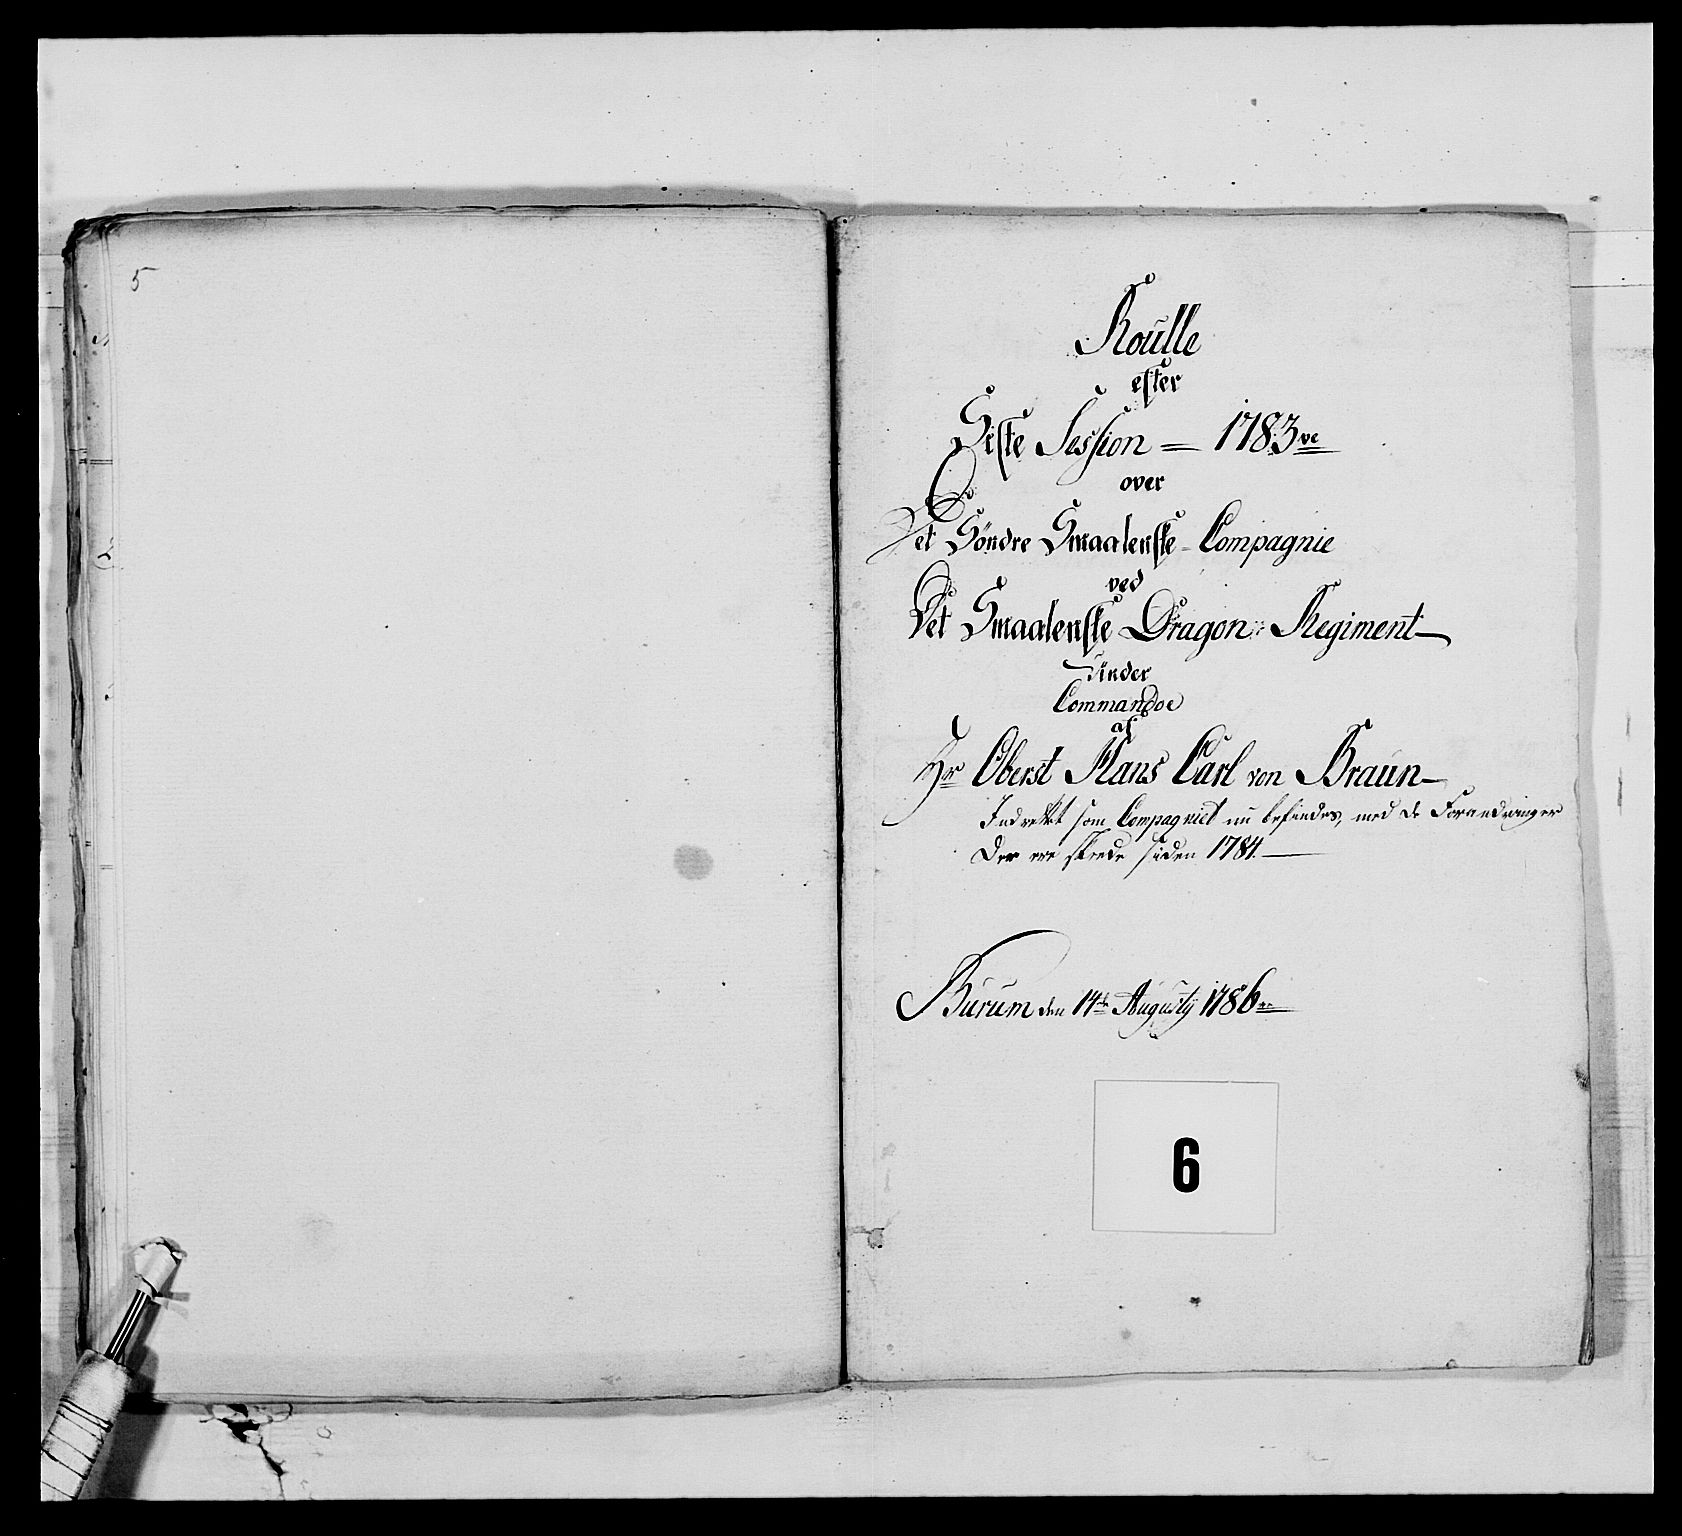 5
Roulle
efter
Siste Session = 1783ve
over
Det Søndre Smaalenske Compagnie
ved
Det Smaalenske Dragon: Regiment
Under
Commandoe
af
Hr Oberst Hans Carl von Braun
Indrettet som Compagniet nu befindes, med de Forandringer
Der ere skeede siden 1784.
Burum den 14de Augusty 1786
6